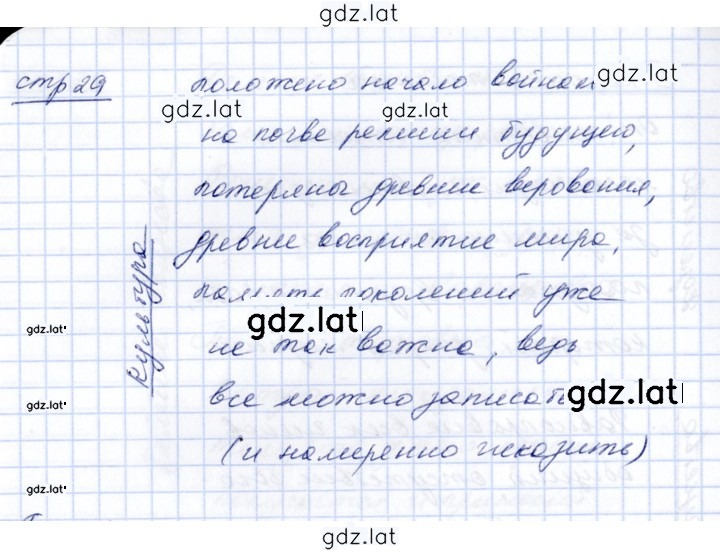 gdz.lat
стр 29
положено начало войнам gdz.lat
gdz.lat gdz.lat
на почве религии будущего,
потеряны древние верования,
древнее восприятие мира,
культура
память поколений уже
gdz.lat
gdz.lat
не так важна, ведь
все можно записать
gdz.lat gdz.lat
(и намеренно исказить)
gdz.lat
gdz.lat